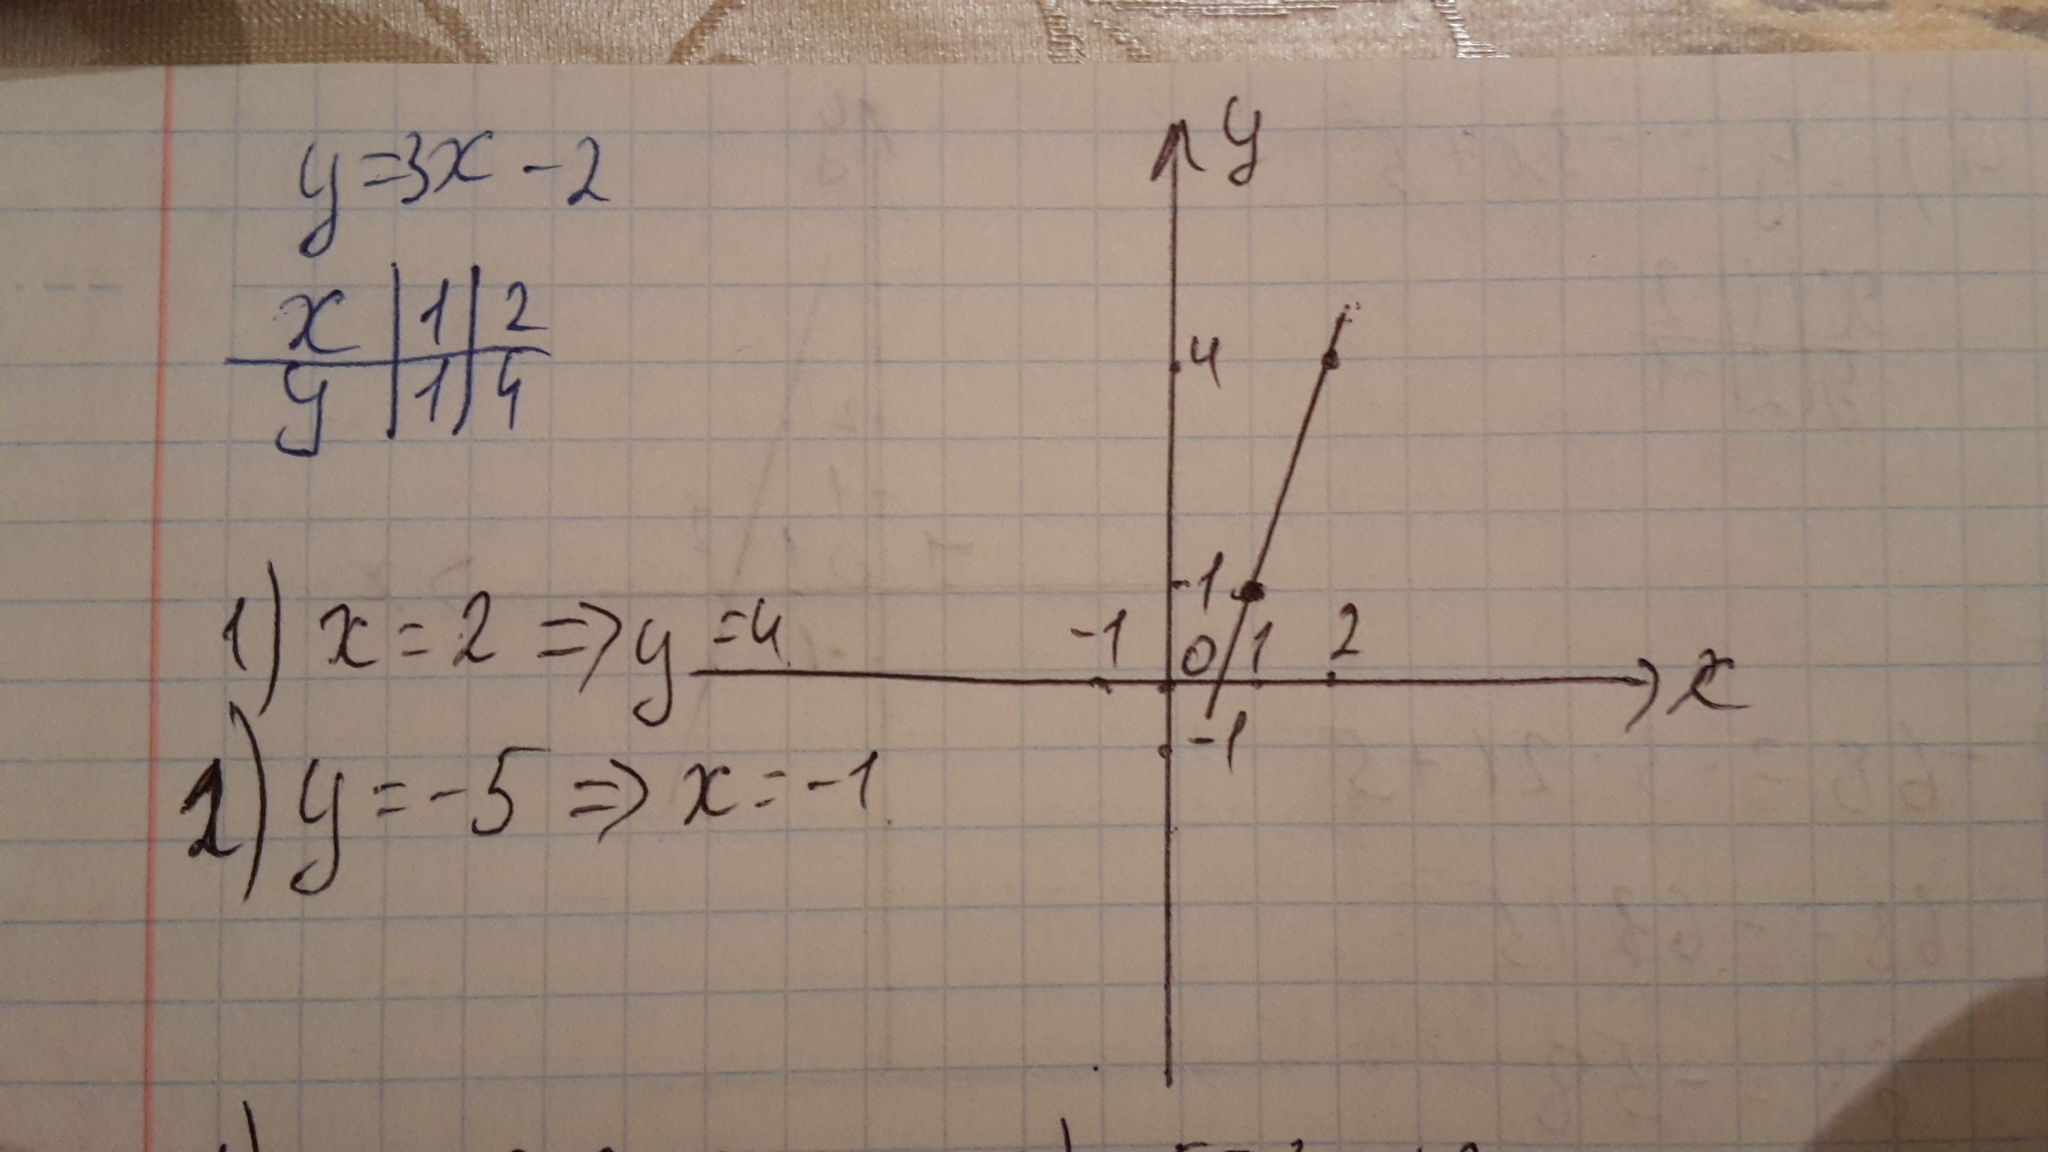 y=3x-2
x | 1 | 2
y | 1 | 4
1) x=2 => y=4
2) y=-5 => x=-1
y
4
-1
-1 0 1 2
x
-1